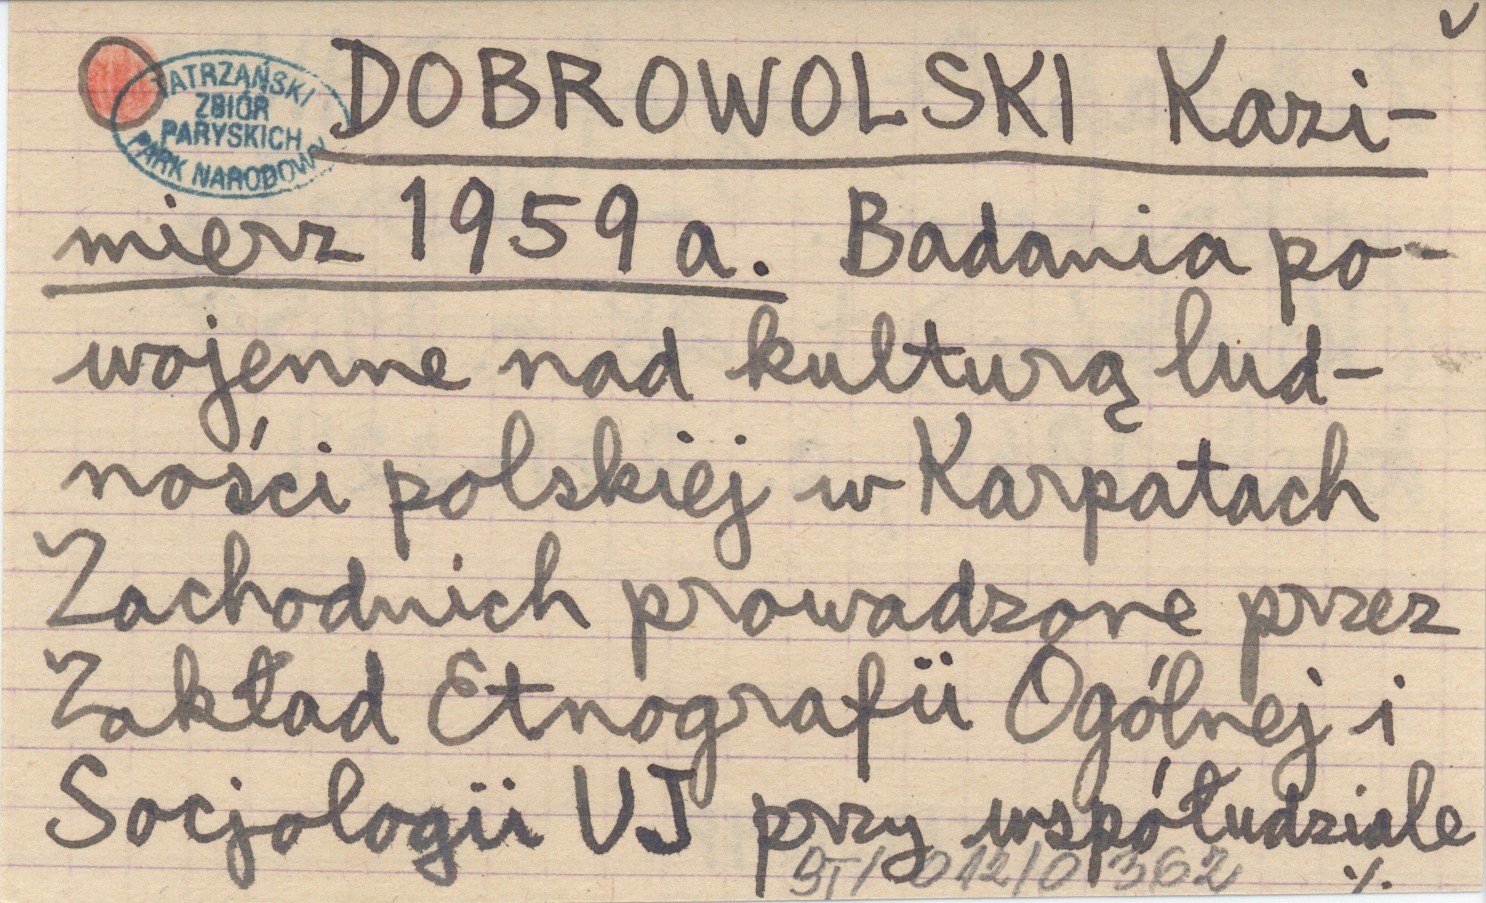 ✓
TATRZAŃSKI
ZBIÓR
PARYSKICH
PARK NARODOWY
DOBROWOLSKI Kazi-
mierz 1959 a. Badania po-
wojenne nad kulturą lud-
ności polskiej w Karpatach
Zachodnich prowadzone przez
Zakład Etnografii Ogólnej i
Socjologii UJ przy współudziale
ST/012/0362 ./.